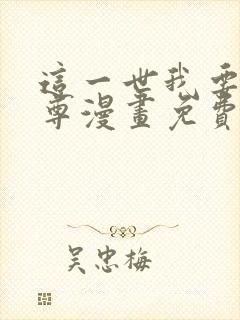 這一世我要
尊漫畫免費
吴忠梅